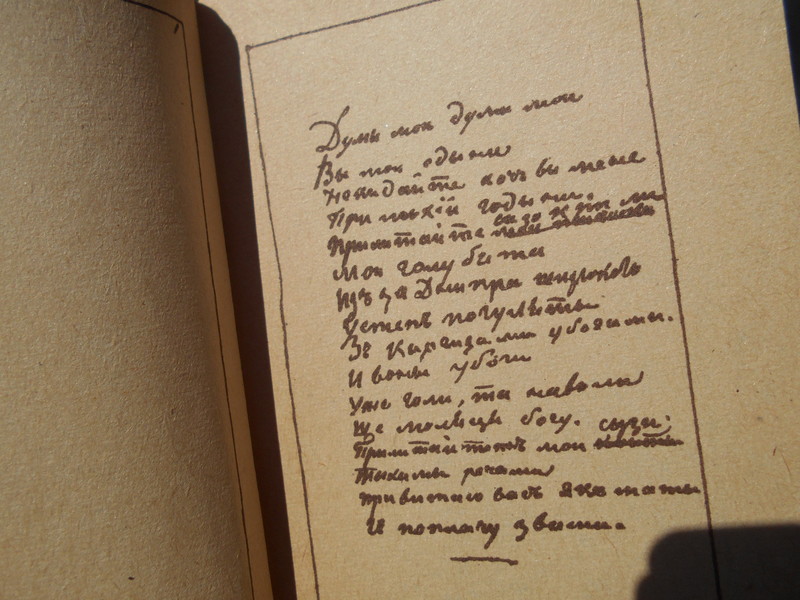 Думы мои думы мои
Вы мои одыни
Некидайте хочь вы мене
При лыхій годыни.
Прилитайте сызокрыли
Мои голубята
Изъ за Днипра широкого
Устепъ погуляты
Зъ Киргизами убогими.
И воны убоги
Уже голи, та наволи
Ще молыця богу.
Прилитайтежъ мои сызи:
Тыхимы речами
Привитаю васъ якъ маты
И поплачу звами.